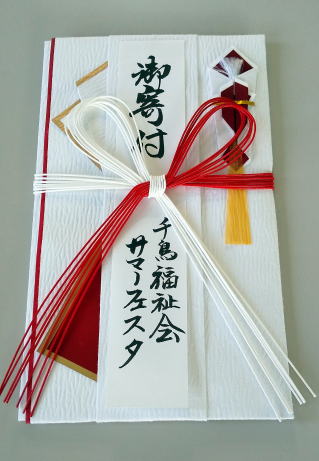 御寄付
千鳥福祉会
サマーフェスタ